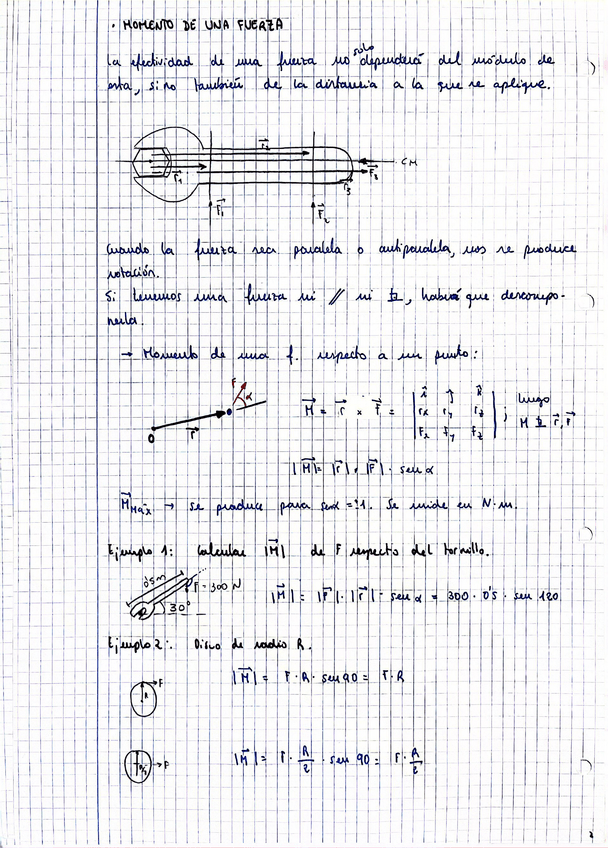 · MOMENTO DE UNA FUERZA
La efectividad de una fuerza no solo dependerá del módulo de
esta, sino también de la distancia a la que se aplique.
F₂
CM
F₁
F₃
r₃
F₁
F₂
Cuando la fuerza sea paralela o antiparalela, nos se produce
rotación.
Si tenemos una fuerza ni // ni ⊥, habrá que descompo-
nerla.
→ Momento de una f. respecto a un punto:
F
α
O
r
M = r × F = | î ĵ k̂ | ; luego
| rx ry rz | M ⊥ r, F
| Fx Fy Fz |
|M| = |r| · |F| · sen α
M Máx → se produce para sen α = 1. Se mide en N·m.
Ejemplo 1: Calcular |M| de F respecto del tornillo.
0'5m
F = 300 N
30°
|M| = |F| · |r| · sen α = 300 · 0'5 · sen 120
Ejemplo 2: Disco de radio R.
F
R
|M| = F · R · sen 90 = F · R
R/2
F
|M| = F · R/2 · sen 90 = F · R/2